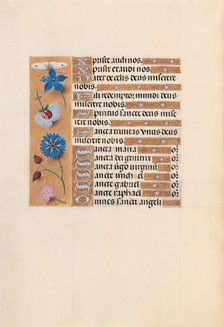 Xpriste audi nos.
Xpriste exaudi nos.
Pater de celis deus miserere
nobis.
Fili redemptor mundi deus
miserere nobis.
Spiritus sancte deus mise
rere nobis.
Sancta trinitas unus deus mi
serere nobis.
Sancta maria o
Sancta dei genitrix o
Sancta virgo virginū o
Sancte michael o
Sancte gabriel o
Sancte raphael o
Omnes sancti angeli